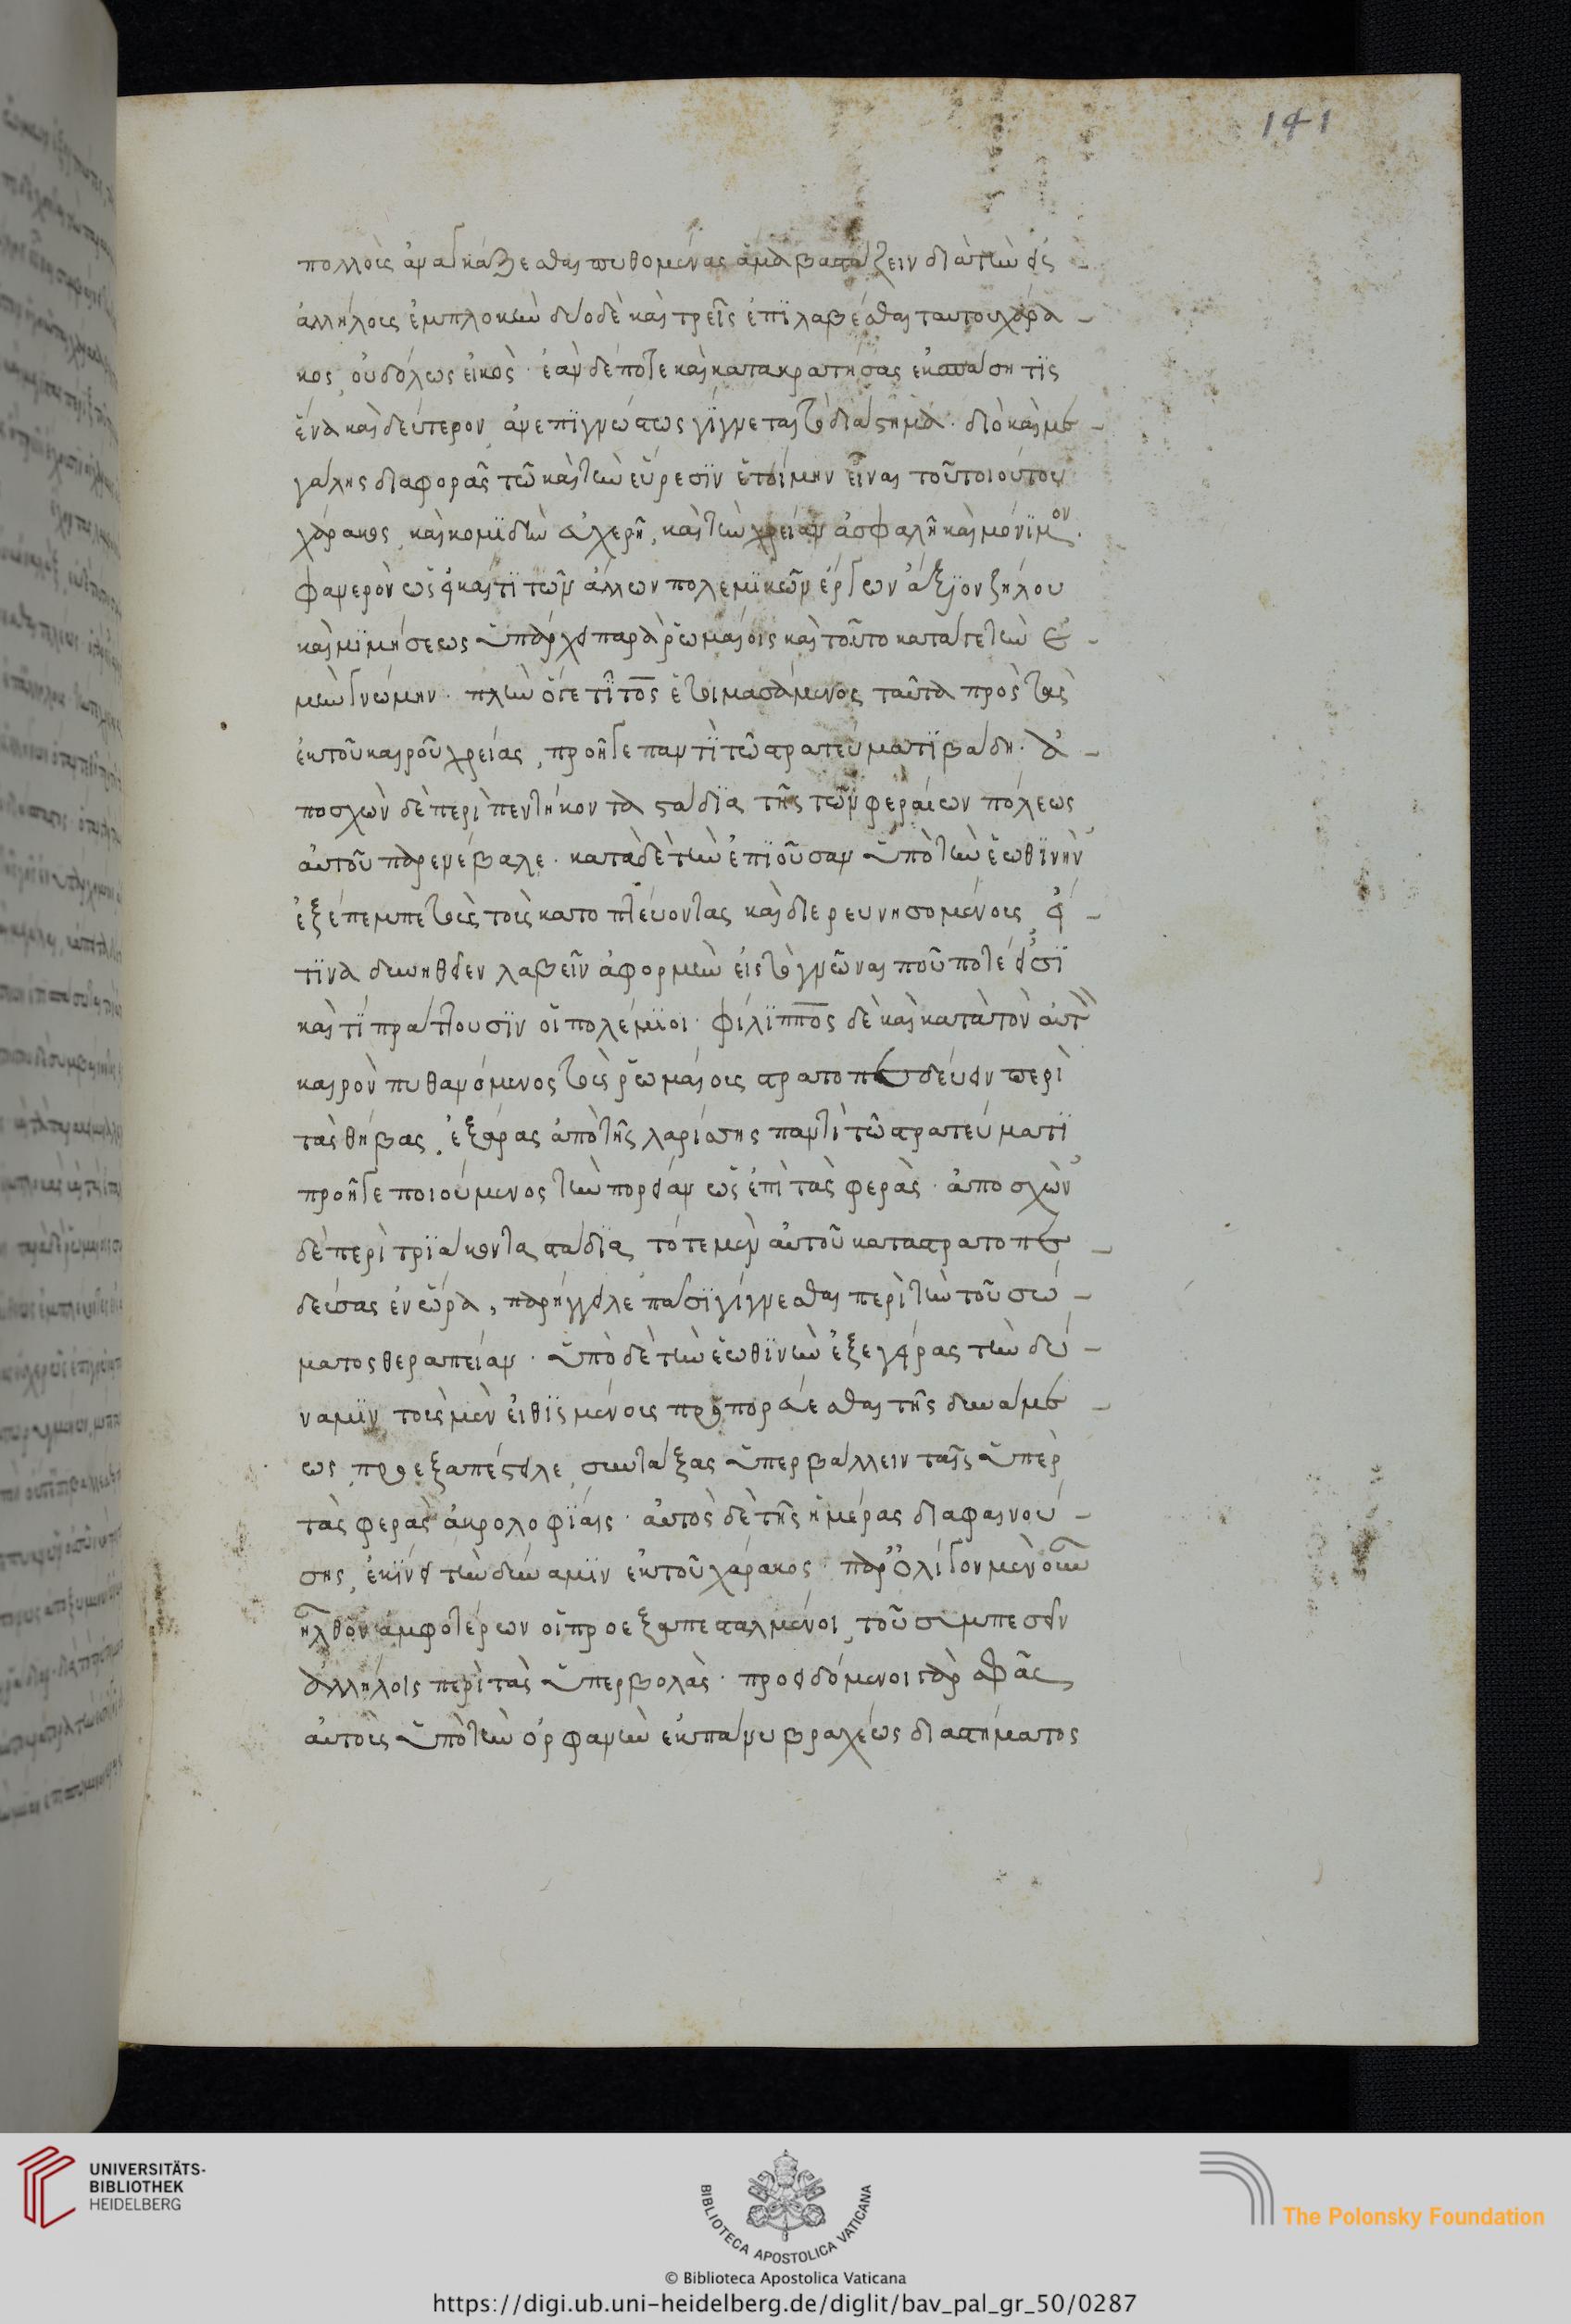 141
πολλοὺς ἀναγκάζεσθαι πειθομένας ἅμα βαστάζειν διὰ τὴν εἰς
ἀλλήλους ἐμπλοκὴν δύο δὲ καὶ τρεῖς ἐπϊλαβέσθαι ταυτου χάρα-
κος, οὐδόλως εἰκὸς· ἐὰν δέ ποτε καὶ κατακρατήσας ἐκσπάση τὶς
ἕνα καὶ δεύτερον ἀνεπϊγνώστως γίγνεται τὸ διάστημα· διὸ καὶ με-
γάλης διαφορᾶς τῶ καὶ τὴν εὕρεσϊν ἑτοίμην εἶναι τοῦ τοιούτου
χάρακος, καὶ κομϊδὴν εὐχερῆ, καὶ τὴν χρείαν ἀσφαλῆ καὶ μόνϊμον.
φανερὸν ὡς εἰ καί τϊ τῶν ἄλλων πολεμϊκῶν ἔργων ἄξϊον ζήλου
καὶ μϊμήσεως ὑπάρχει παρὰ ῥωμαίοις καὶ τοῦτο κατά γε τὴν ἐ-
μὴν γνώμην· πλὴν ὅγε τίτος ἑτοιμασάμενος ταῦτα πρὸς τὰς
ἐκ τοῦ καιροῦ χρείας, προῆγε παντὶ τῶ στρατεύματϊ βάδην· ἀ-
ποσχὼν δὲ περὶ πεντήκοντα στάδϊα τῆς τῶν φεραίων πόλεως
αὐτοῦ παρενέβαλε· κατὰ δὲ τὴν ἐπϊοῦσαν ὑπὸ τὴν ἑωθϊνὴν
ἐξέπεμπε τοὺς τοὺς κατοπτεύοντας καὶ διερευνησομένους, εἴ-
τϊνα δυνηθεῖεν λαβεῖν ἀφορμὴν εἰς τὸ γνῶναι ποῦ ποτέ εἰσϊ
καὶ τί πράττουσϊν οἱ πολέμϊοι· φίλϊππος δὲ καὶ κατὰ τὸν αὐτὸν
καιρὸν πυθανόμενος τοὺς ῥωμαίους στρατοπεδεύειν περὶ
τὰς θήβας, ἐξάρας ἀπὸ τῆς λαρίσσης παντὶ τῶ στρατεύματϊ
προῆγε ποιούμενος τὴν πορείαν ὡς ἐπὶ τὰς φερὰς· ἀποσχὼν
δὲ περὶ τρϊάκοντα στάδϊα, τότε μὲν αὐτοῦ καταστρατοπε-
δεύσας ἐν ὥρα, παρήγγειλε πᾶσϊ γίγνεσθαι περὶ τὴν τοῦ σώ-
ματος θεραπείαν· ὑπὸ δὲ τὴν ἑωθϊνὴν ἐξεγείρας τὴν δύ-
ναμϊν, τοὺς μὲν εἰθϊσμένους προπορεύεσθαι τῆς δυνάμε-
ως, προεξαπέστειλε, συντάξας ὑπερβάλλειν ταῖς ὑπὲρ
τὰς φερὰς ἀκρολοφϊαις· αὐτὸς δὲ τῆς ἡμέρας διαφαινού-
σης, ἐκϊνει τὴν δύναμϊν ἐκ τοῦ χάρακος· παρ' ὀλίγον μὲν οὖν
ἦλθον ἀμφοτέρων οἱ προεξαπεσταλμένοι, τοῦ συμπεσεῖν
ἀλλήλοις περὶ τὰς ὑπερβολὰς· προειδόμενοι γὰρ σφᾶς
αὐτοὺς ὑπὸ τὴν ὀρφανὴν ἐκ πάνυ βραχέως διαστήματος
UNIVERSITÄTS-
BIBLIOTHEK
HEIDELBERG
BIBLIOTECA APOSTOLICA VATICANA
The Polonsky Foundation
© Biblioteca Apostolica Vaticana
https://digi.ub.uni-heidelberg.de/diglit/bav_pal_gr_50/0287